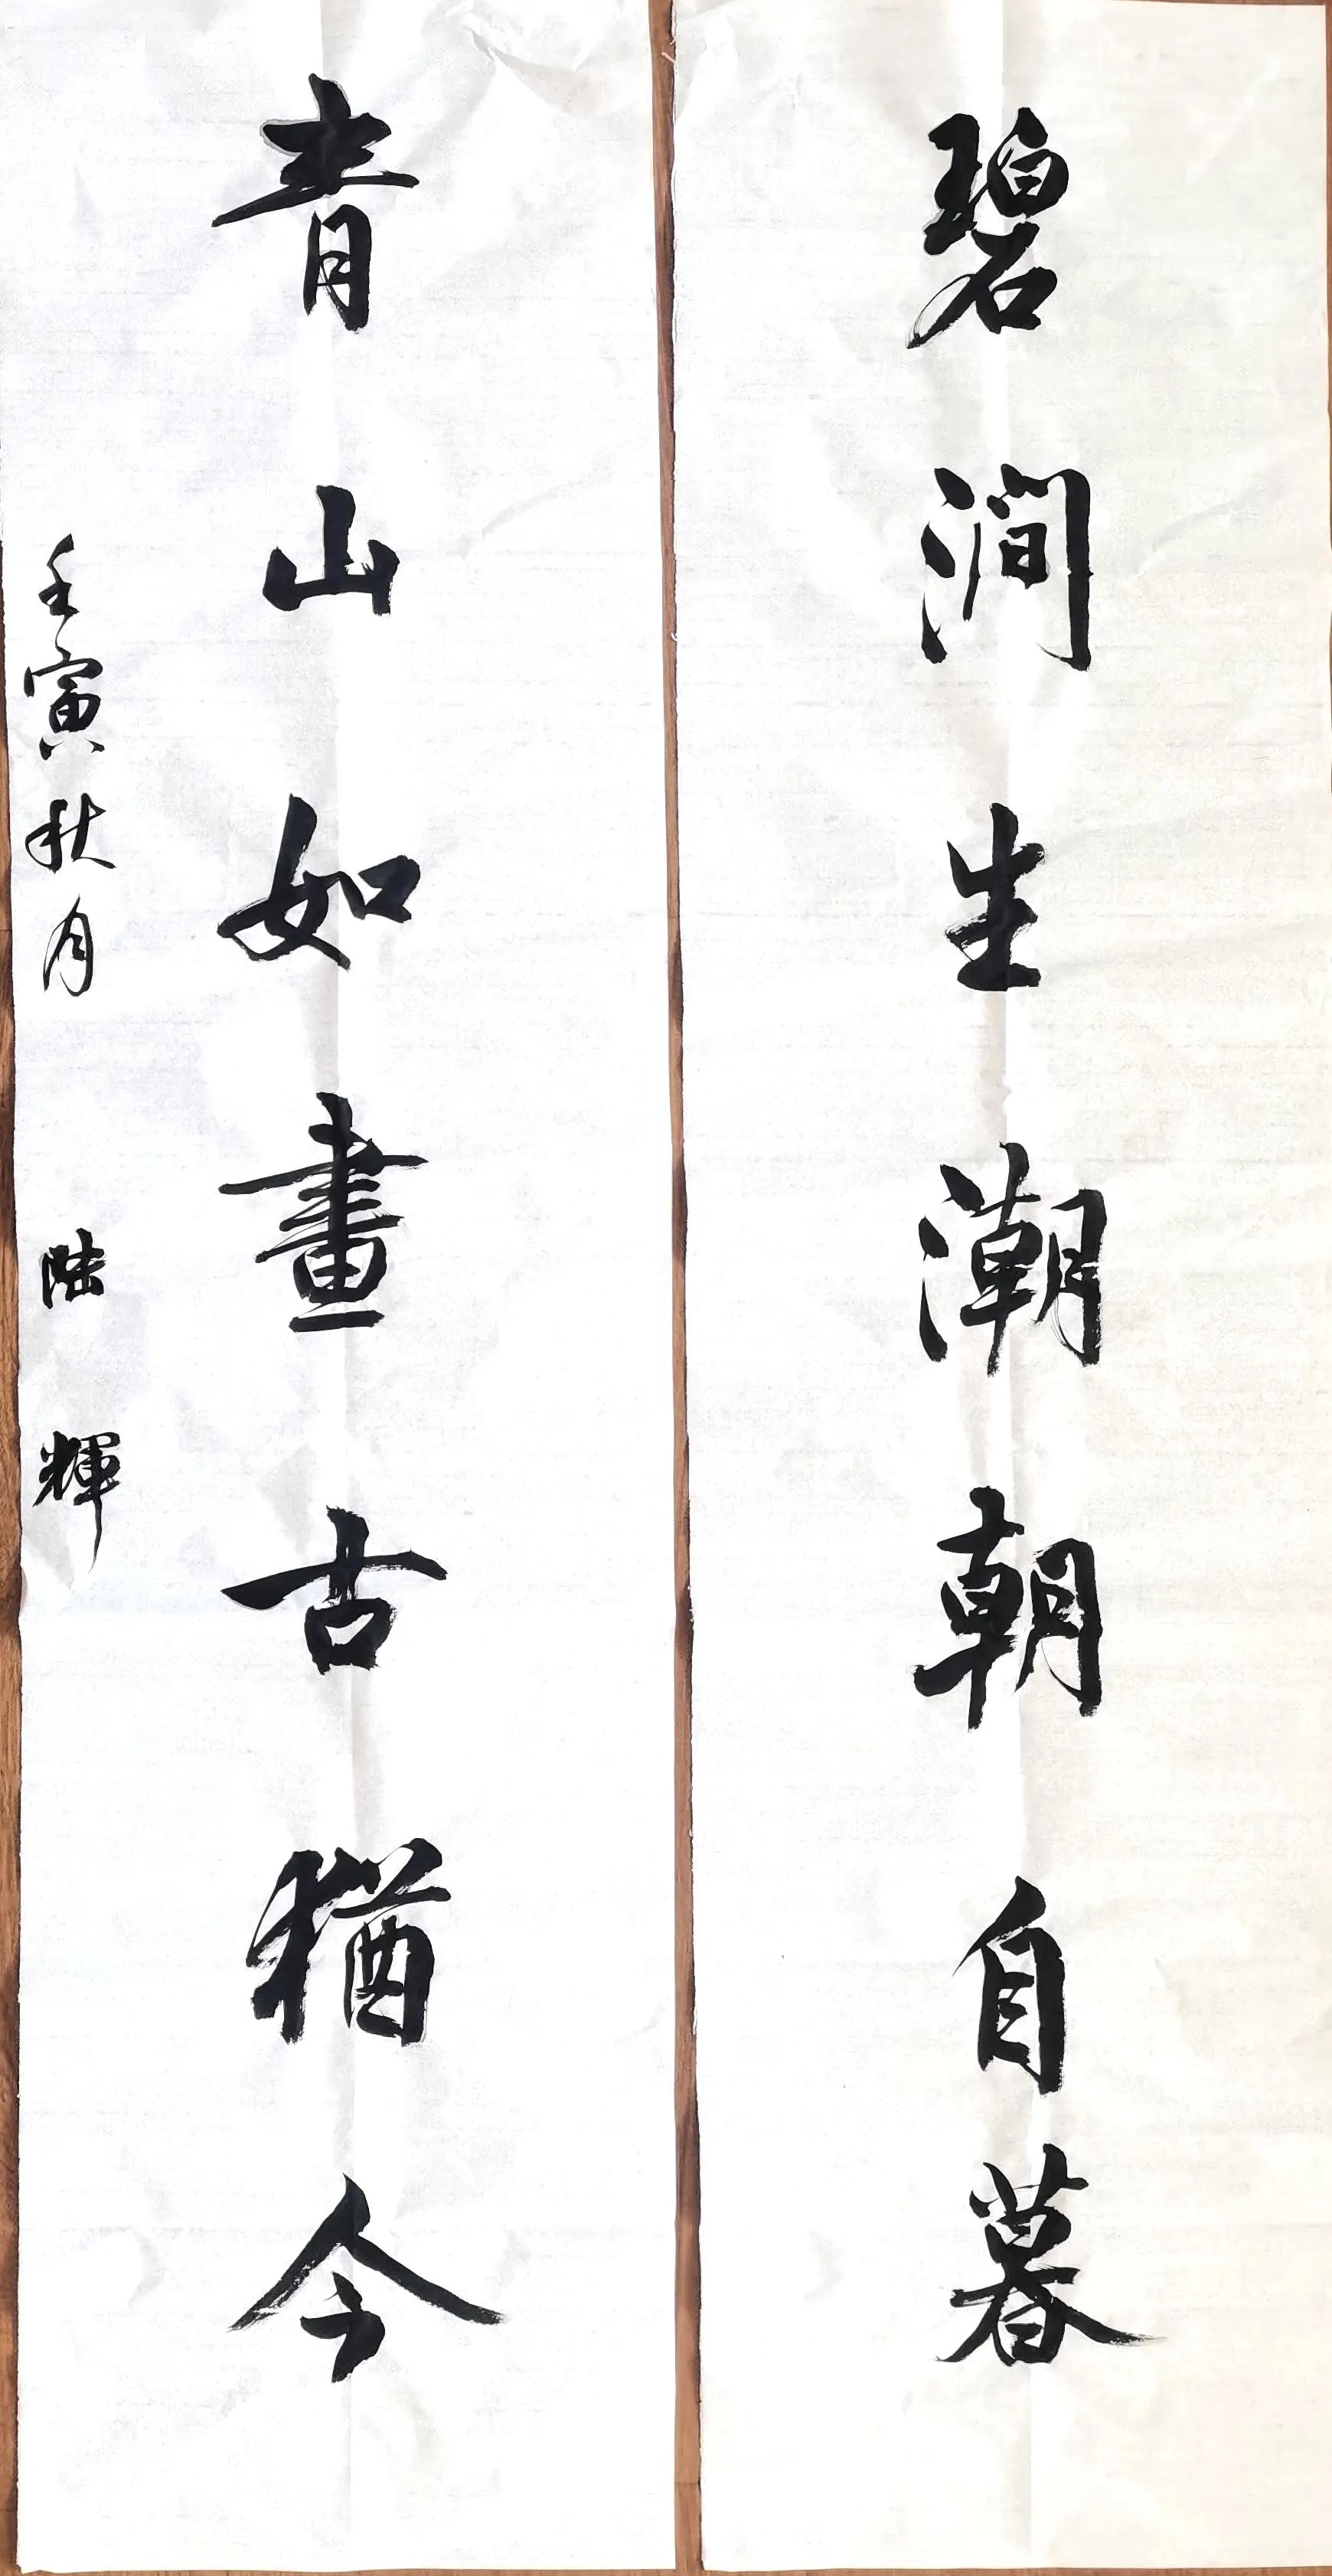 碧澗生潮朝自暮
青山如畫古猶今
壬寅秋月 陆輝